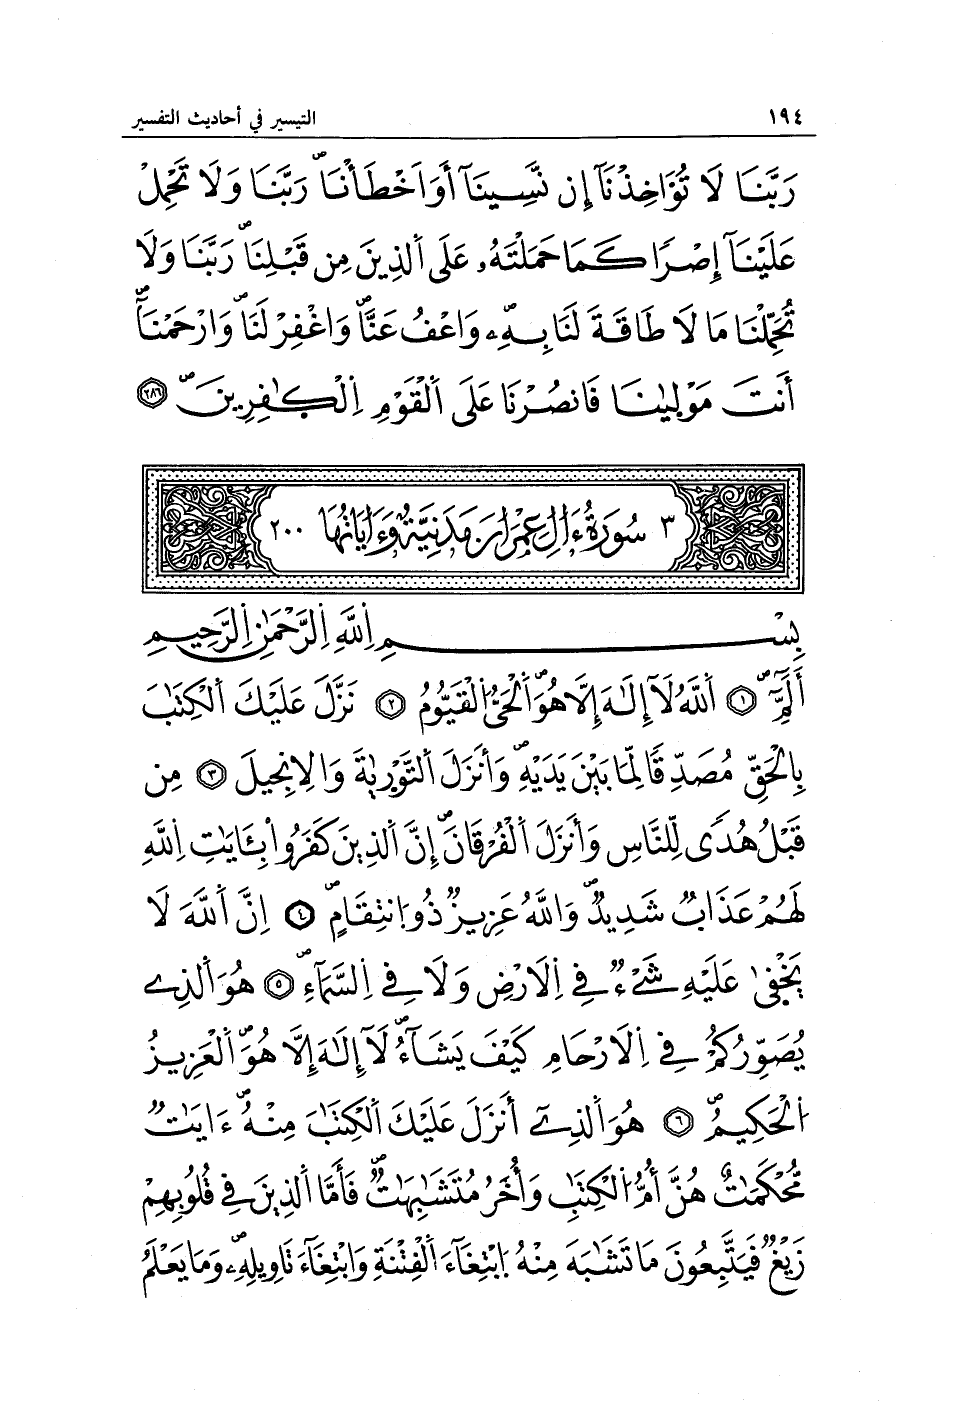 ١٩٤ التيسير في أحاديث التفسير
رَبَّنَا لَا تُؤَاخِذْنَآ إِن نَّسِينَآ أَوَ اَخْطَأْنَاۖ رَبَّنَا وَلَا تَحْمِلْ
عَلَيْنَآ إِصْرًا كَمَا حَمَلْتَهُۥ عَلَى اَلذِينَ مِن قَبْلِنَاۖ رَبَّنَا وَلَا
تُحَمِّلْنَا مَا لَا طَاقَةَ لَنَا بِهِۦۖ وَاعْفُ عَنَّاۖ وَاغْفِرْ لَنَاۖ وَارْحَمْنَآۖ
أَنتَ مَوْلٜىٰنَا فَانصُرْنَا عَلَى اَلْقَوْمِ اِلْكٰفِرِينَۖ ٢٨٦
٣ سُورَةُ ءَالِ عِمْرَانَ مَدَنِيَّةٌ وَءَايَاتُهَا ٢٠٠
بِسْمِ اِللَّهِ اِلرَّحْمَٰنِ اِلرَّحِيمِ
أَلَٓمِّٓۖ ١ اَللَّهُ لَآ إِلَٰهَ إِلَّا هُوَۖ اَلْحَيُّ اُلْقَيُّومُ ٢ نَزَّلَ عَلَيْكَ اَلْكِتَٰبَ
بِالْحَقِّ مُصَدِّقًا لِمَا بَيْنَ يَدَيْهِۖ وَأَنزَلَ اَلتَّوْرٜىٰةَ وَالِانجِيلَ ٣ مِن
قَبْلُ هُدًى لِّلنَّاسِ وَأَنزَلَ اَلْفُرْقَانَۖ إِنَّ اَلذِينَ كَفَرُوا بِـَٔايَٰتِ اِللَّهِ
لَهُمْ عَذَابٌ شَدِيدٌۖ وَاللَّهُ عَزِيزٌ ذُو اُنتِقَامٍۖ ٤ اِنَّ اَللَّهَ لَا
يَخْفٜىٰ عَلَيْهِ شَےْءٌ فِے اِلَارْضِ وَلَا فِے اِلسَّمَآءِۖ ٥ هُوَ اَلذِے
يُصَوِّرُكُمْ فِے اِلَارْحَامِ كَيْفَ يَشَآءُۖ لَآ إِلَٰهَ إِلَّا هُوَۖ اَلْعَزِيزُ
اُلْحَكِيمُۖ ٦ هُوَ اَلذِےٓ أَنزَلَ عَلَيْكَ اَلْكِتَٰبَ مِنْهُۖ ءَايَٰتٌ
مُّحْكَمَٰتٌ هُنَّ أُمُّ اُلْكِتَٰبِ وَأُخَرُ مُتَشَٰبِهَٰتٌۖ فَأَمَّا اَلذِينَ فِے قُلُوبِهِمْ
زَيْغٌ فَيَتَّبِعُونَ مَا تَشَٰبَهَ مِنْهُ اُبْتِغَآءَ اَلْفِتْنَةِ وَابْتِغَآءَ تَاوِيلِهِۦۖ وَمَا يَعْلَمُ